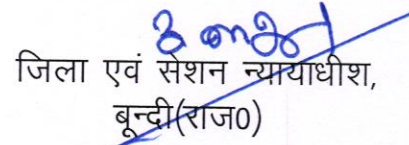 जिला एवं सेशन न्यायाधीश,
बून्दी(राज0)